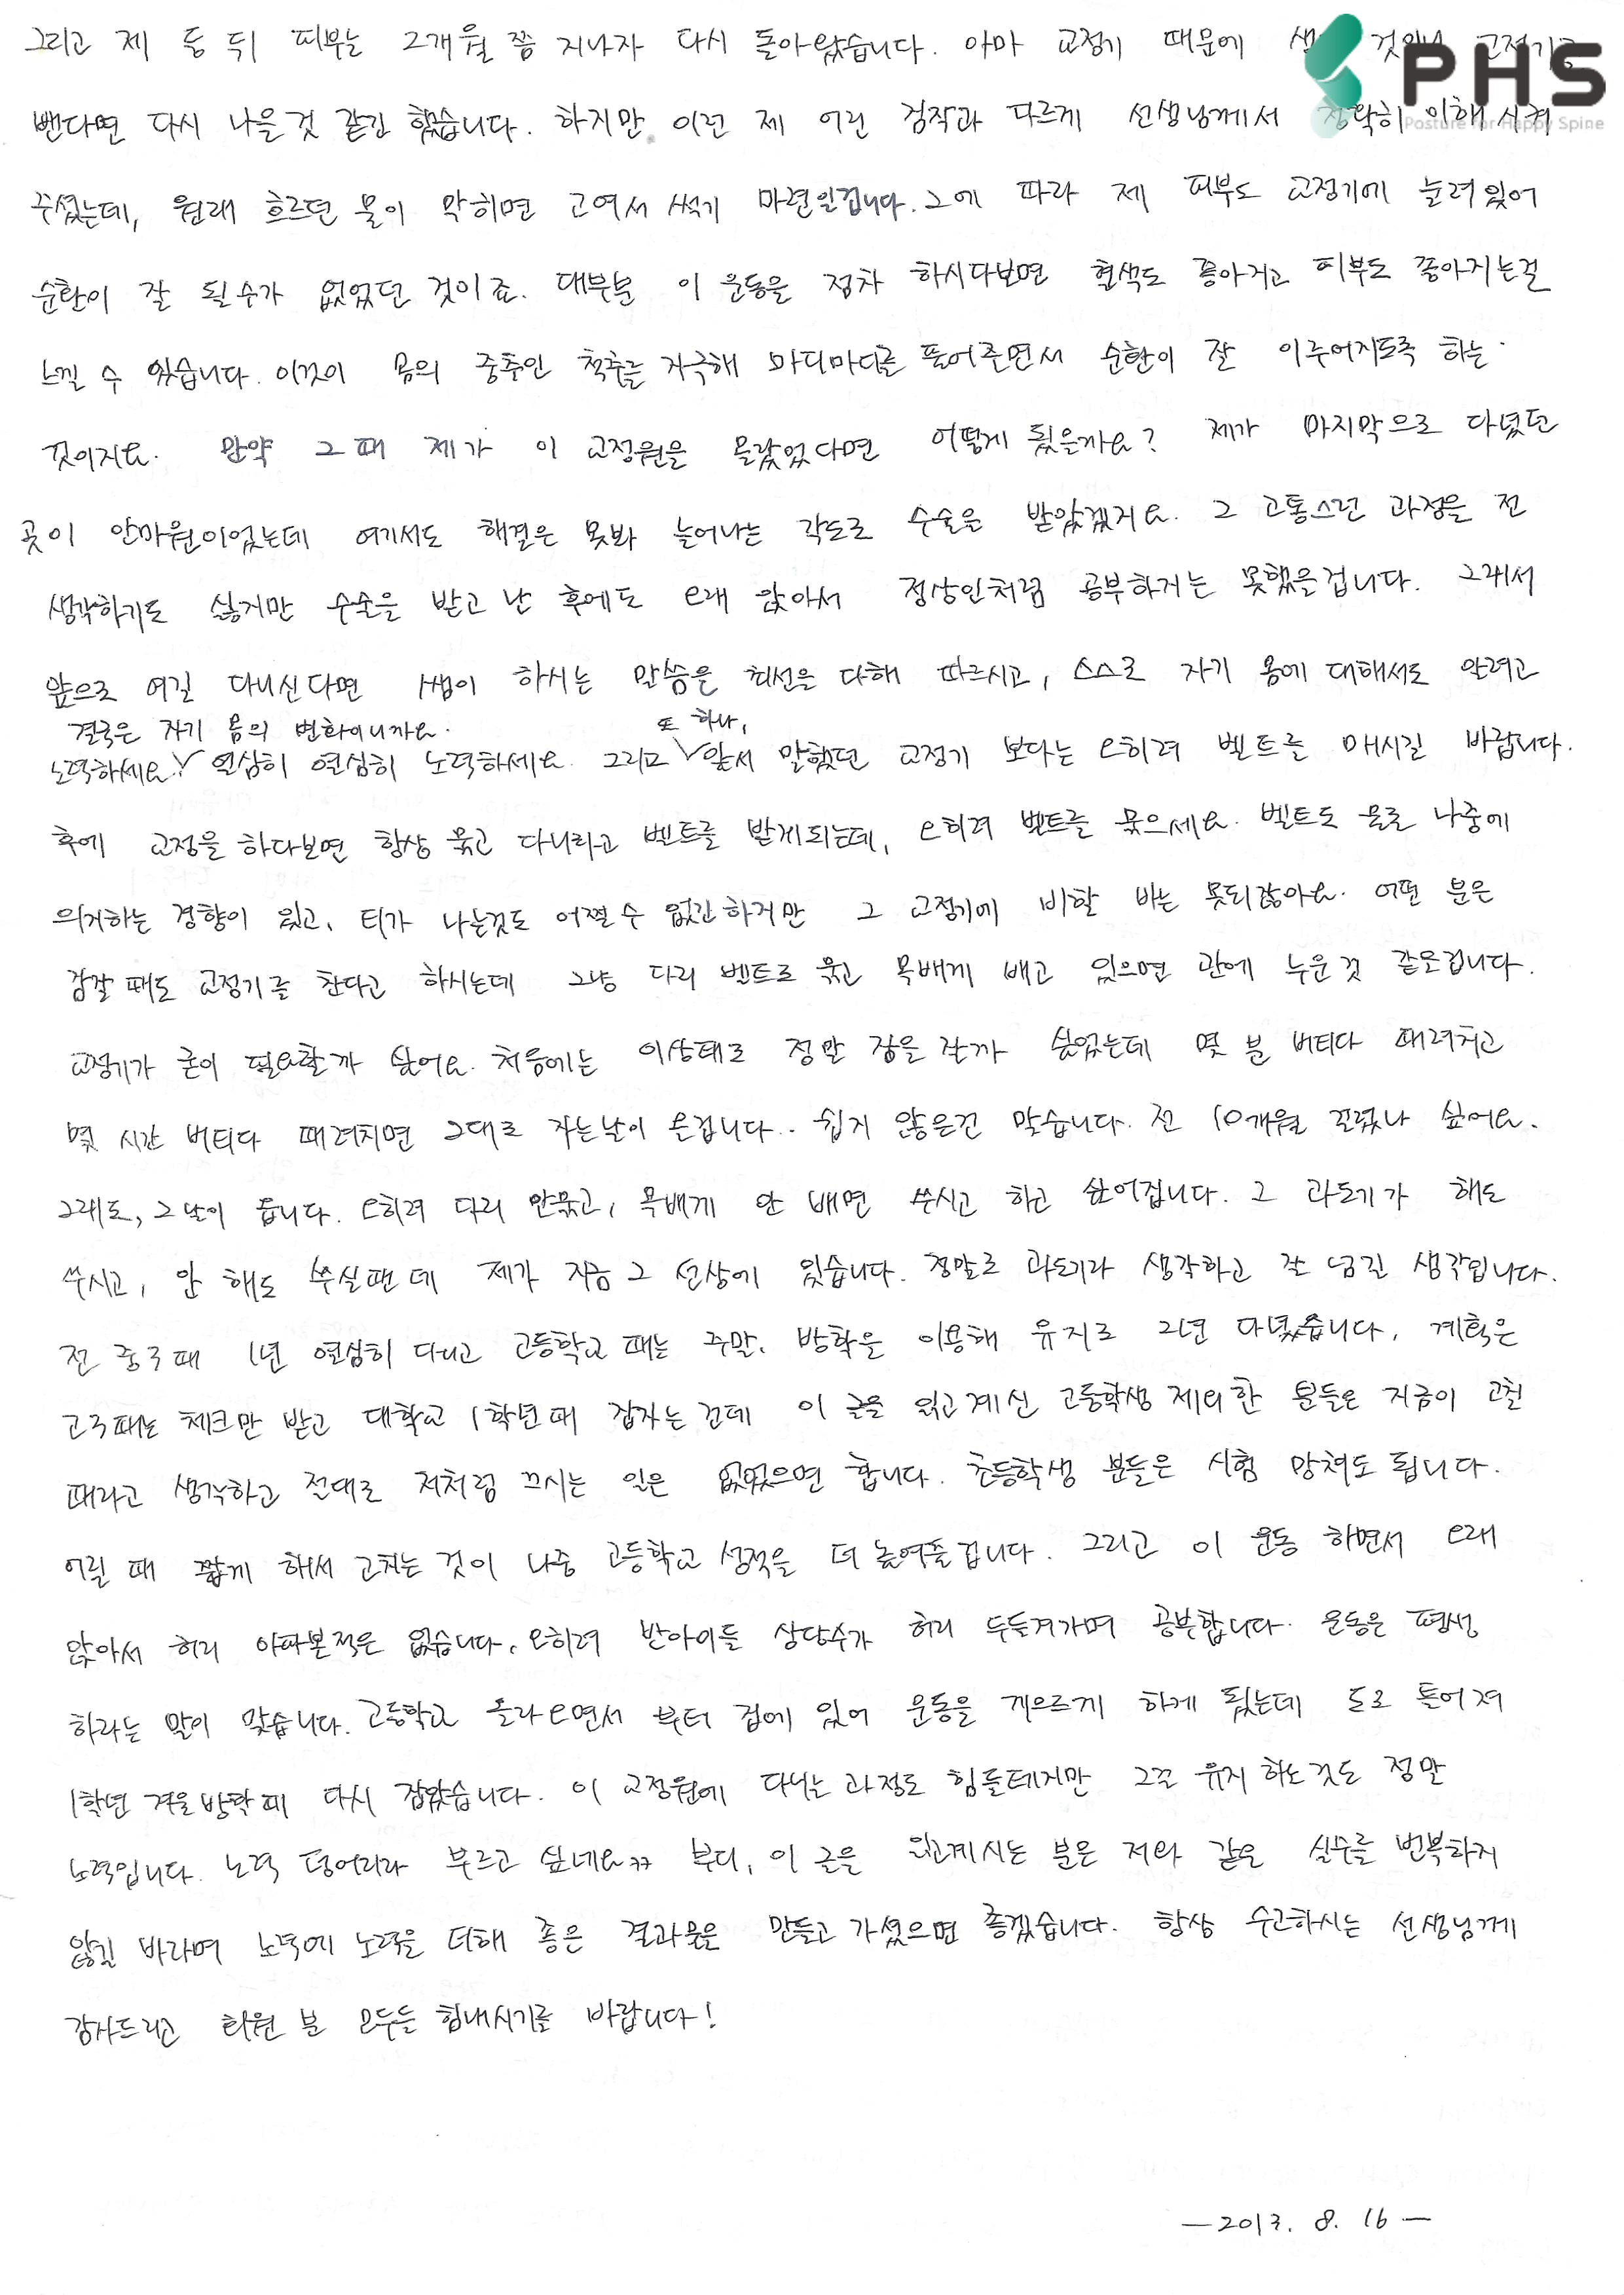 그리고 제 등 뒤 피부는 2개월 쯤 지나자 다시 돌아왔습니다. 아마 교정기 때문에
PHS
Posture for Happy Spine
뺀다면 다시 나을것 같긴 했습니다. 하지만 이런 제 어린 짐작과 다르게 선생님께서 정확히 이해시켜
주셨는데, 원래 흐르던 물이 막히면 고여서 썩기 마련일겁니다. 그에 따라 제 피부도 교정기에 눌려있어
순환이 잘 될수가 없었던 것이죠. 대부분 이 운동을 점차 하시다보면 혈색도 좋아지고 피부도 좋아지는걸
느낄 수 있습니다. 이것이 몸의 중추인 척추를 자극해 마디마디를 풀어주면서 순환이 잘 이루어지도록 하는
것이지요. 만약 그 때 제가 이 교정원을 몰랐었다면 어떻게 됬을까요? 제가 마지막으로 다녔던
곳이 안마원이었는데 여기서도 해결은 못봐 늘어나는 각도로 수술을 받았겠지요. 그 고통스런 과정을 전
생각하기도 싫지만 수술을 받고 난 후에도 오래 앉아서 정상인처럼 공부하지는 못했을겁니다. 그래서
앞으로 여길 다니신다면 쌤이 하시는 말씀을 최선을 다해 따르시고, 스스로 자기 몸에 대해서도 알려고
결국은 자기 몸의 변화이니까요. 또 하나,
노력하세요! 열심히 열심히 노력하세요. 그리고 앞서 말했던 교정기 보다는 오히려 벨트를 매시길 바랍니다.
후에 교정을 하다보면 항상 묶고 다니라고 벨트를 받게되는데, 오히려 벨트를 묶으세요. 벨트도 물론 나중에
의지하는 경향이 있고, 티가 나는것도 어쩔수 없긴하지만 그 교정기에 비할 바는 못되잖아요. 어떤 분은
잠잘 때도 교정기를 찬다고 하시는데 그냥 다리 벨트로 묶고 목배게 배고 있으면 관에 누운것 같을겁니다.
교정기가 굳이 필요할까 싶어요. 처음에는 이상태로 정말 잠을 잘까 싶었는데 몇 분 버티다 때려치고
몇 시간 버티다 때려치면 그대로 자는날이 온겁니다.. 쉽지 않은건 맞습니다. 전 10개월 걸렸나 싶어요.
그래도, 그 날이 옵니다. 오히려 다리 안묶고, 목배게 안 배면 쑤시고 하고 싶어집니다. 그 과도기가 해도
쑤시고, 안 해도 쑤실땐데 제가 지금 그 선상에 있습니다. 정말로 과도기라 생각하고 잘 넘길 생각입니다.
전 중3때 1년 열심히 다니고 고등학교 때는 주말, 방학을 이용해 유지로 2년 다녔습니다. 계획은
고3때는 체크만 받고 대학교 1학년때 잡자는 건데 이 글을 읽고계신 고등학생 제외한 분들은 지금이 고칠
때라고 생각하고 절대로 저처럼 끄시는 일은 없었으면 합니다. 초등학생 분들은 시험 망쳐도 됩니다.
어릴 때 짧게 해서 고치는 것이 나중 고등학교 성적을 더 높여줄겁니다. 그리고 이 운동 하면서 오래
앉아서 허리 아파본적은 없습니다. 오히려 반아이들 상당수가 허리 두들겨가며 공부합니다. 운동은 평생
하라는 말이 맞습니다. 고등학교 올라오면서 부터 집에 있어 운동을 게으르게 하게 됬는데 도로 틀어져
1학년 겨울방학때 다시 잡았습니다. 이 교정원에 다니는 과정도 힘들테지만 그끈 유지하는것도 정말
노력입니다. 노력 덩어리라 부르고 싶네요ㅋㅋ 부디, 이 글을 읽고계시는 분은 저와 같은 실수를 번복하지
않길 바라며 노력에 노력을 더해 좋은 결과물을 만들고 가셨으면 좋겠습니다. 항상 수고하시는 선생님께
감사드리고 회원 분 모두들 힘내시기를 바랍니다!
—2013. 8. 16—